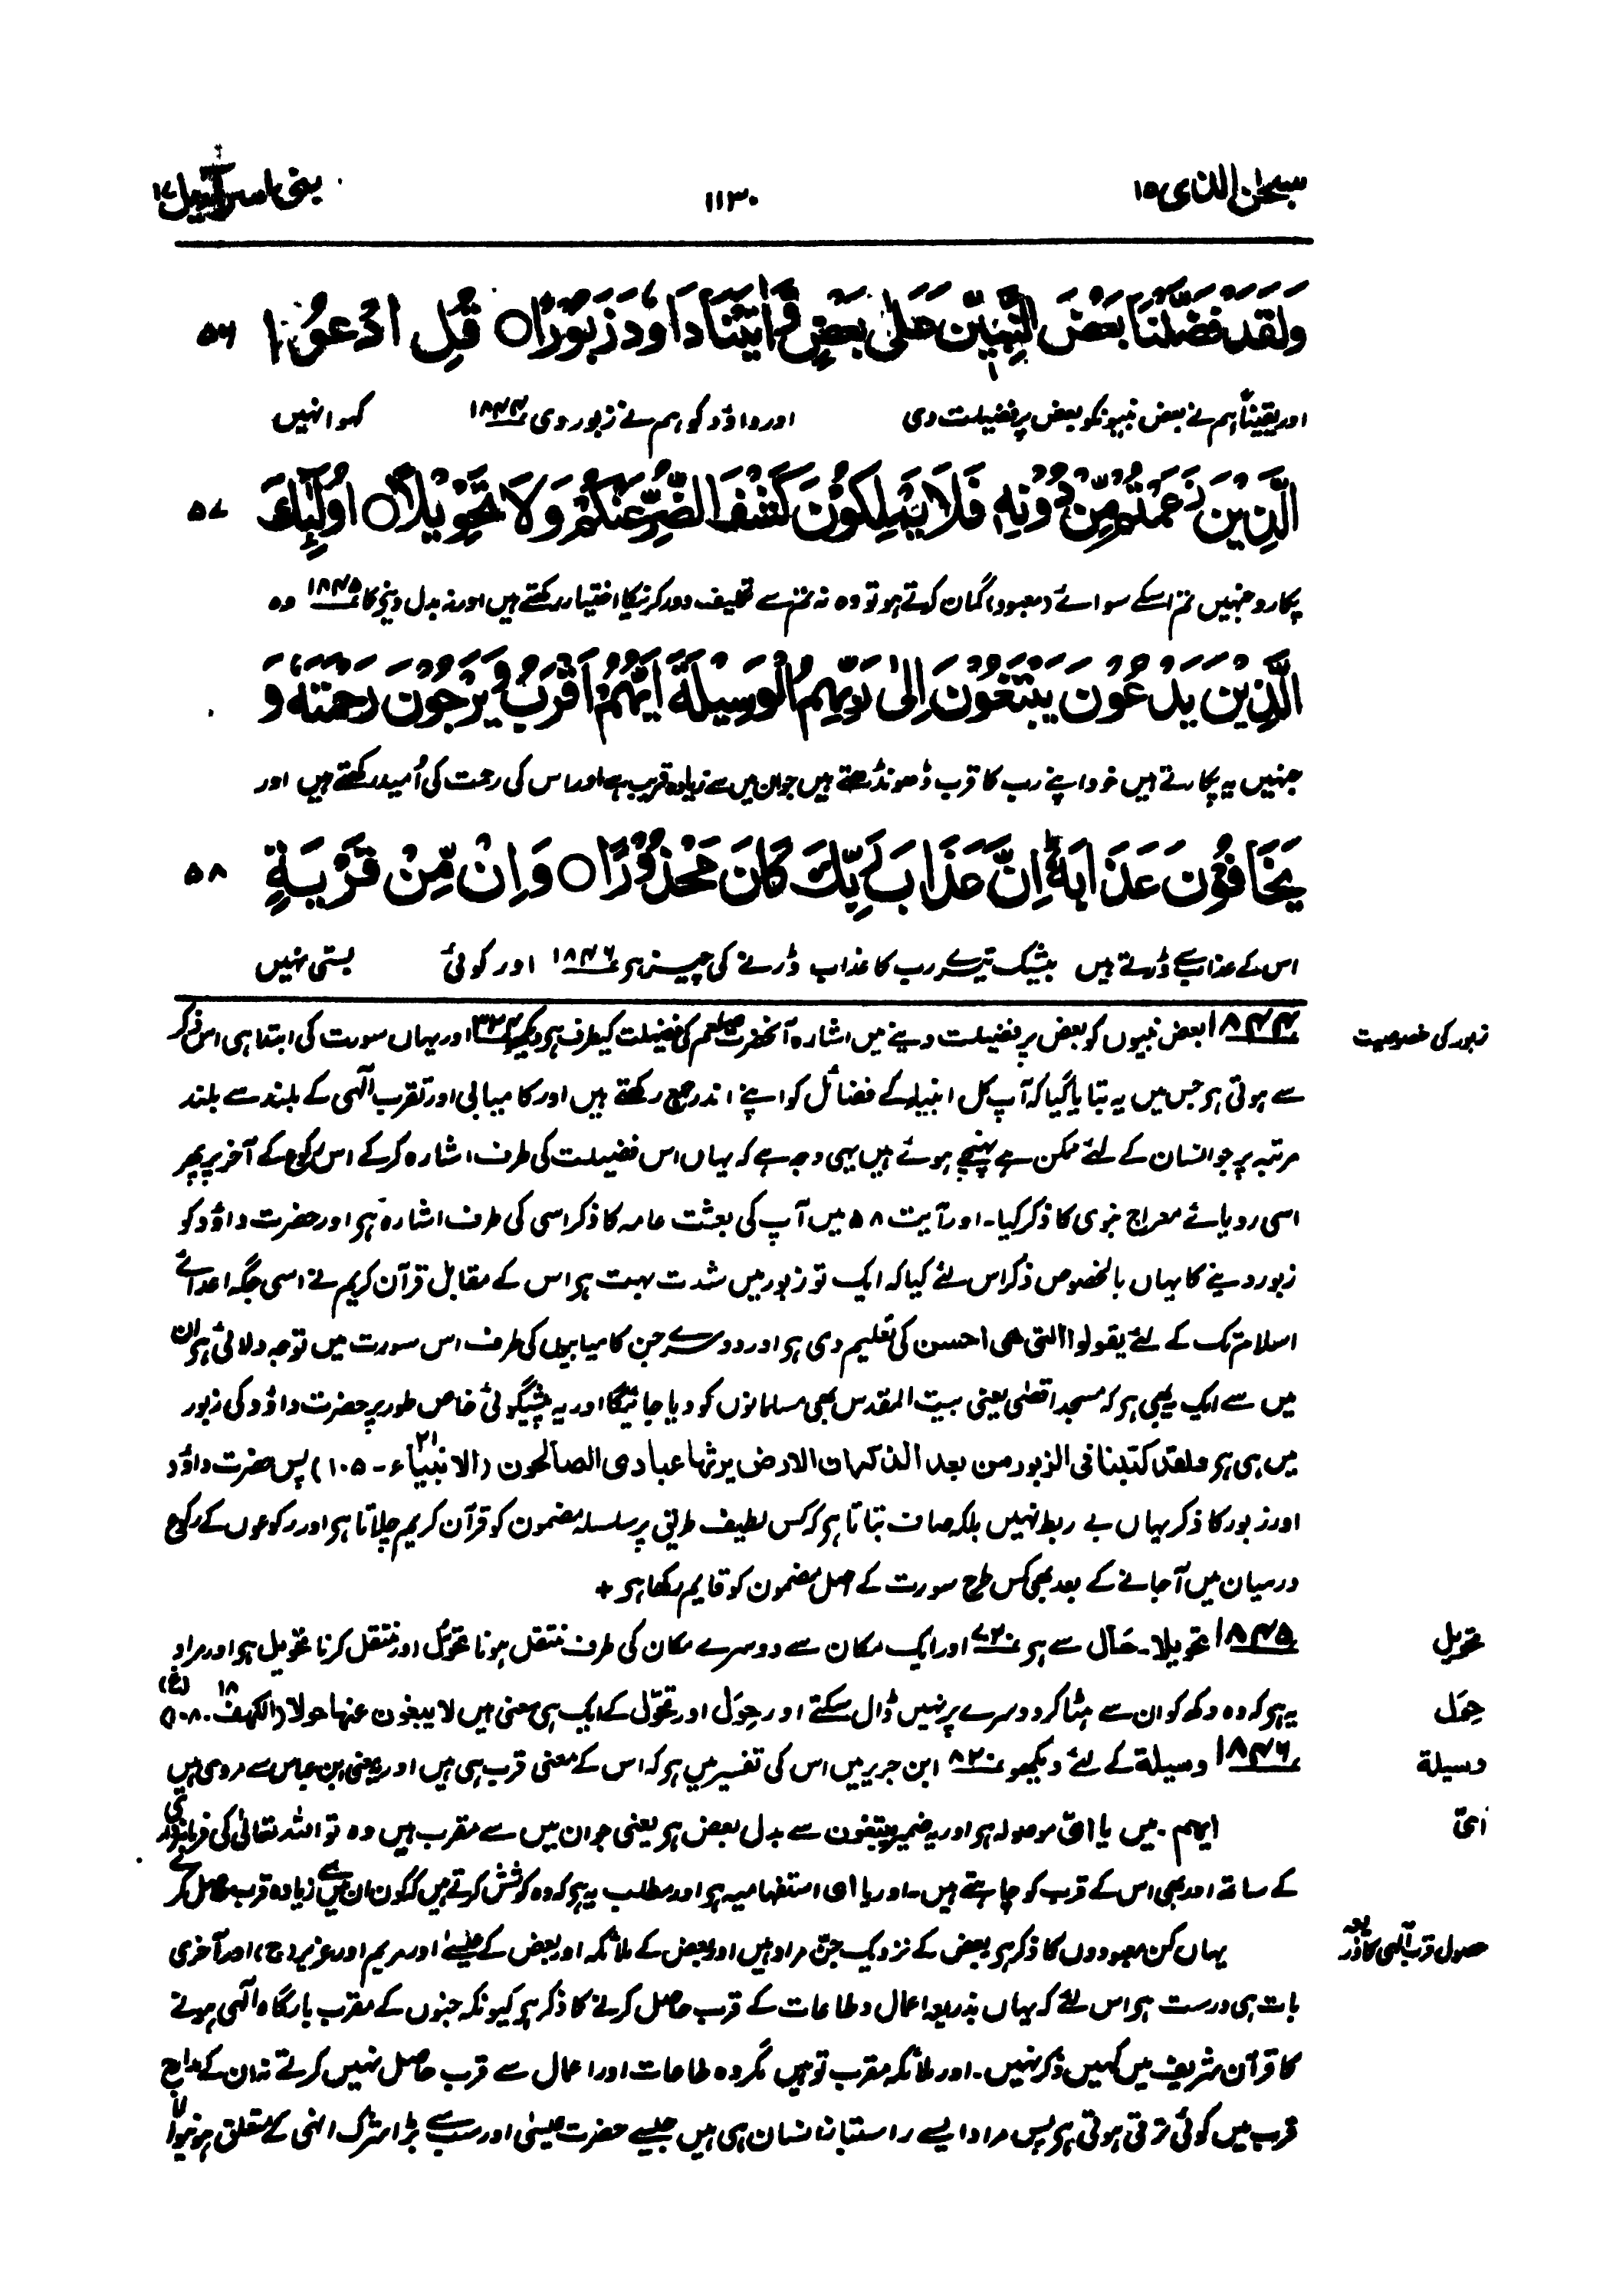 سبحٰن الذی ۱۵
۱۱۳۰
بنی اسرآئیل ۱۷
وَلَقَدْ فَضَّلْنَا بَعْضَ النَّبِیّٖنَ عَلٰی بَعْضٍ وَّاٰتَیْنَا دَاوٗدَ زَبُوْرًا ○ قُلِ ادْعُوا ۵۶
اور یقیناً ہم نے بعض نبیونکو بعض پر فضیلت دی اور داؤد کو ہم نے زبور دی ۱۸۴۴ کہو انہیں
الَّذِیْنَ زَعَمْتُمْ مِّنْ دُوْنِهٖ فَلَا یَمْلِكُوْنَ كَشْفَ الضُّرِّ عَنْكُمْ وَلَا تَحْوِیْلًا ○ اُولٰٓئِكَ ۵۷
پکارو جنہیں تم اسکے سوائے (معبود) گمان کرتے ہو تو وہ نہ تم سے تکلیف دور کرنیکا اختیار رکھتے ہیں اور نہ بدل دینے کا ۱۸۴۵ وہ
الَّذِیْنَ یَدْعُوْنَ یَبْتَغُوْنَ اِلٰی رَبِّهِمُ الْوَسِیْلَةَ اَیُّهُمْ اَقْرَبُ وَیَرْجُوْنَ رَحْمَتَهٗ وَ
جنہیں یہ پکارتے ہیں خود اپنے رب کا قرب ڈھونڈھتے ہیں جو ان میں سے زیادہ قریب ہے اور اس کی رحمت کی اُمید رکھتے ہیں اور
یَخَافُوْنَ عَذَابَهٗ ؕ اِنَّ عَذَابَ رَبِّكَ كَانَ مَحْذُوْرًا ○ وَاِنْ مِّنْ قَرْیَةٍ ۵۸
اس کے عذاب سے ڈرتے ہیں بیشک تیرے رب کا عذاب ڈرنے کی چیز ہر ۱۸۴۶ اور کوئی بستی نہیں
زبور کی خصوصیت
۱۸۴۴ بعض نبیوں کو بعض پر فضیلت دینے میں اشارہ آنحضرت صلعم کی فضیلت کیطرف ہر دیکھو اور یہاں سورت کی ابتدا ہی اس ذکر
سے ہوتی ہر جس میں یہ بتایا گیا کہ آپ کل انبیاء کے فضائل کو اپنے اندر جمع رکھتے ہیں اور کامیابی اور تقرب الٰہی کے بلند سے بلند
مرتبہ پر جو انسان کے لئے ممکن ہے پہنچے ہوئے ہیں یہی وجہ ہے کہ یہاں اس فضیلت کی طرف اشارہ کر کے اس رکوع کے آخر پر پھر
اسی رویائے معراج نبوی کا ذکر کیا۔ اور آیت ۵۸ میں آپ کی بعثت عامہ کا ذکر اسی کی طرف اشارہ ہر اور حضرت داؤد کو
زبور دینے کا یہاں بالخصوص ذکر اس لئے کیا کہ ایک تو زبور میں شدت بہت ہر اس کے مقابل قرآن کریم نے اسی جگہ اعدائے
اسلام تک کے لئے یقولوا التی ھی احسن کی تعلیم دی ہر اور دوسرے جن کامیابیوں کی طرف اس سورت میں توجہ دلائی ہر ان
میں سے ایک یہ بھی ہر کہ مسجد اقصٰی یعنی بیت المقدس بھی مسلمانوں کو دیا جائیگا اور یہ پیشگوئی خاص طور پر حضرت داؤد کی زبور
میں ہی ہر ولقد کتبنا فی الزبور من بعد الذکر ان الارض یرثھا عبادی الصالحون (الانبیاء ۲۱ - ۱۰۵) پس حضرت داؤد
اور زبور کا ذکر یہاں بے ربط نہیں بلکہ صاف بتاتا ہر کہ کس لطیف طریق پر سلسلہ مضمون کو قرآن کریم چلاتا ہر اور رکوعوں کے رکوع
درمیان میں آ جانے کے بعد بھی کس طرح سورت کے اصل مضمون کو قایم رکھا ہر +
تحویل
۱۸۴۵ تحویلا۔ حَالَ سے ہر اور ایک مکان سے دوسرے مکان کی طرف منتقل ہونا تحوّل اور منتقل کرنا تحویل ہر اور مراد
حِوَل
یہ ہر کہ وہ دکھ کو ان سے ہٹا کر دوسرے پر نہیں ڈال سکتے اور حِوَل اور تحوّل کے ایک ہی معنی ہیں لا یبغون عنھا حولا (الکھف ۱۸ - ۱۰۸) (غ)
وسیلة
۱۸۴۶ وسیلة کے لئے دیکھو ۸۲۰ ابن جریر میں اس کی تفسیر میں ہر کہ اس کے معنی قرب ہی ہیں اور یہ معنی ابن عباس سے مروی ہیں
ایّ
ایھم۔ میں یا ایّ موصولہ ہر اور یہ ضمیر یبتغون سے بدل بعض ہر یعنی جو ان میں سے مقرب ہیں وہ تو اللہ تعالٰی کی فرمانبرداری
کے ساتھ اور بھی اس کے قرب کو چاہتے ہیں۔ اور یا ای استفہامیہ ہر اور مطلب یہ ہر کہ وہ کوشش کرتے ہیں کہ کون ان میں سے زیادہ قرب حاصل کرے
حصول قرب الٰہی کا ذریعہ
یہاں کن معبودوں کا ذکر ہر بعض کے نزدیک جنّ مراد ہیں اور بعض کے ملائکہ اور بعض کے عیسٰے اور مریم اور عزیر (ج) اور آخری
بات ہی درست ہر اس لئے کہ یہاں بذریعہ اعمال و طاعات کے قرب حاصل کرنے کا ذکر ہر کیونکہ جنوں کے مقرب بارگاہ الٰہی ہونے
کا قرآن شریف میں کہیں ذکر نہیں۔ اور ملائکہ مقرب تو ہیں مگر وہ طاعات اور اعمال سے قرب حاصل نہیں کرتے نہ ان کے مدارج
قرب میں کوئی ترقی ہوتی ہر پس مراد ایسے راستباز انسان ہی ہیں جیسے حضرت عیسٰی اور سب سے بڑا شرک انہی کے متعلق ہونیوالا